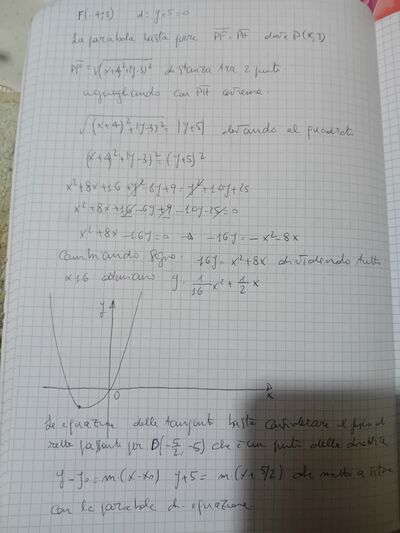 F(-4,3) d: y+5=0
La parabola basta porre PF = PH dove P(x,y)
PF = √(x+4)²+(y-3)² distanza tra 2 punti
uguagliando con PH avremo:
√(x+4)²+(y-3)² = |y+5| elevando al quadrato
(x+4)²+(y-3)² = (y+5)²
x²+8x+16+y²-6y+9 = y²+10y+25
x²+8x+16-6y+9-10y-25=0
x²+8x-16y=0 → -16y=-x²-8x
Cambiando segno: 16y = x²+8x dividendo tutto
x 16 otteniamo y = 1/16 x² + 1/2 x
y
O
x
Le equazioni delle tangenti basta considerare il fascio di
rette passante per D(-5/2,-5) che è un punto della direttrice
y-y₀=m·(x-x₀) y+5=m·(x+5/2) che metto a sistema
con la parabola di equazione.